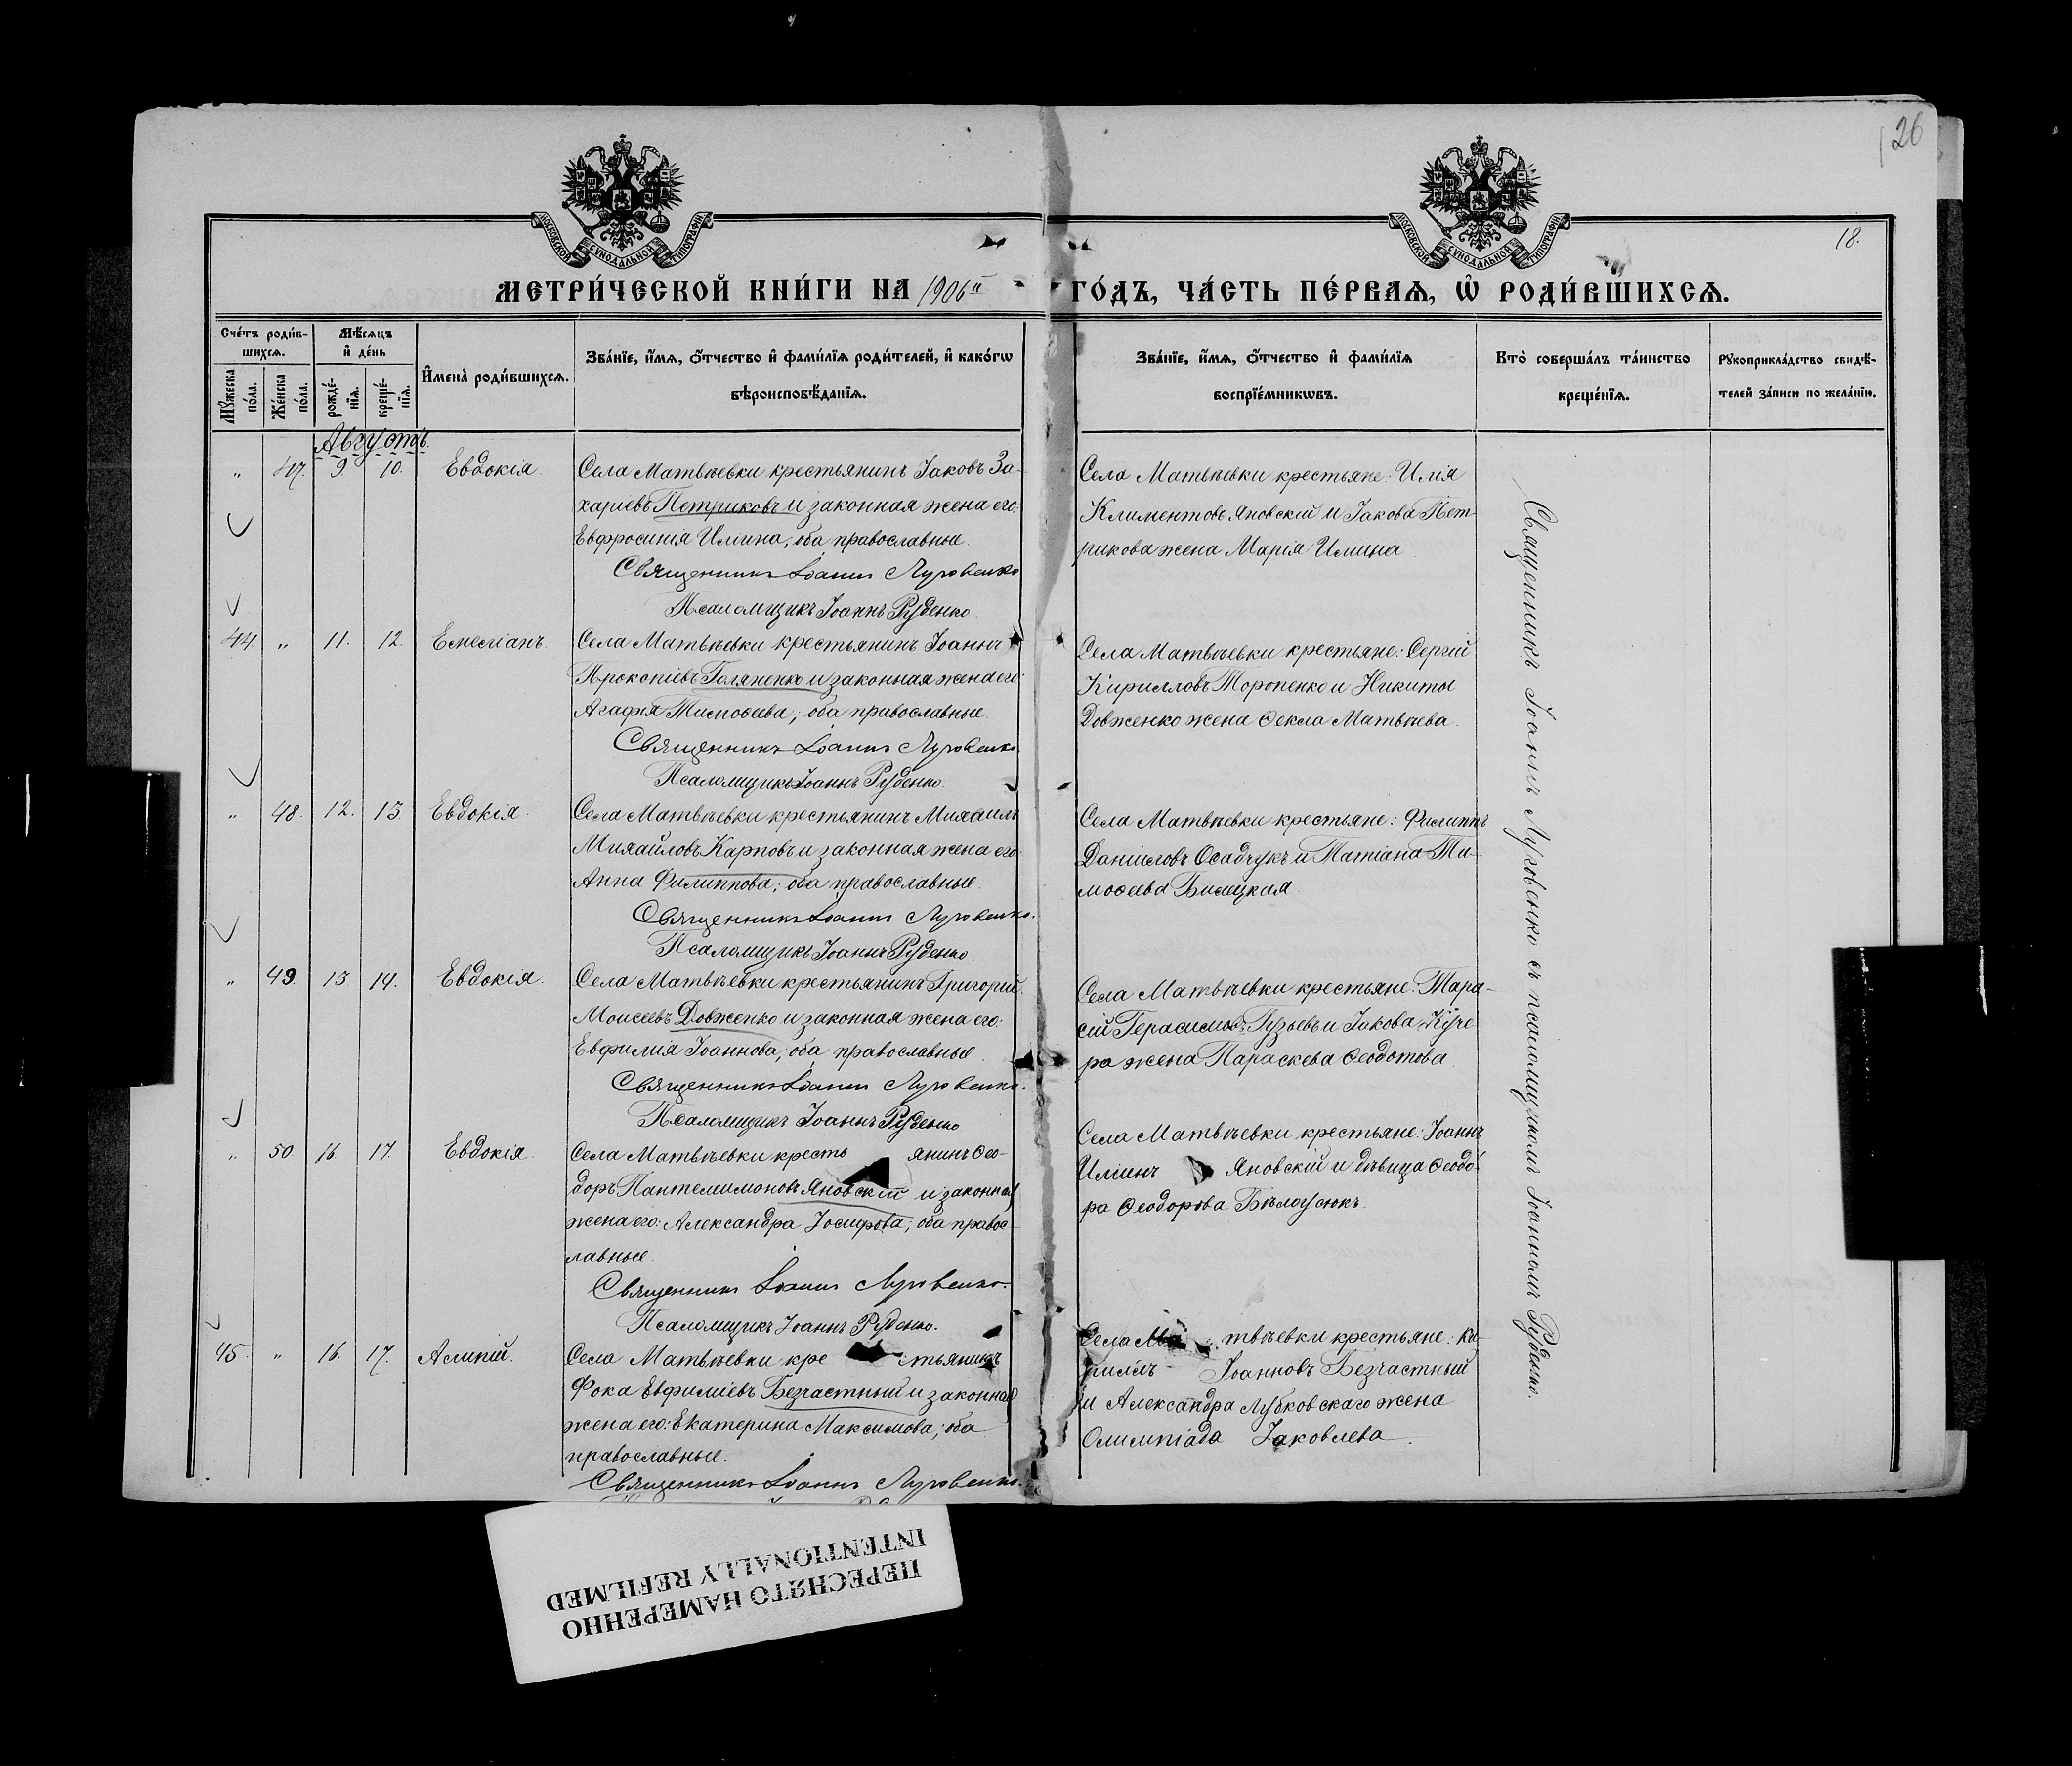 126
МОСКОВСКОЙ СѴНОДАЛЬНОЙ ТИПОГРАФІИ
МОСКОВСКОЙ СѴНОДАЛЬНОЙ ТИПОГРАФІИ
18.
МЕТРИ́ЧЕСКОЙ КНИ́ГИ НА 1906й ГО́ДЪ, ЧА́СТЬ ПЕ́РВАѦ, Ѡ҆ РОДИ́ВШИХСѦ.
Сче́тъ роди́в-
шихсѧ.
Мꙋ́жеска по́ла.
Же́нска по́ла.
Мѣ́сѧцъ
и҆ де́нь
рожде́-
нїѧ.
креще́-
нїѧ.
И҆мена̀ роди́вшихсѧ.
Зва́нїе, и҆́мѧ, ѻ҆́тчество и҆ фами́лїѧ роди́телей, и҆ како́гѡ
вѣроисповѣ́данїѧ.
Зва́нїе, и҆́мѧ, ѻ҆́тчество и҆ фами́лїѧ
воспрїе́мникѡвъ.
Кто̀ соверша́лъ та́инство
креще́нїѧ.
Рꙋкоприкла́дство свидѣ́-
телей за́писи по жела́нїю.
Августъ.
" 47. 9. 10. Евдокія. Села Матвѣевки крестьянинъ Іаковъ За-
харіевъ Петриковъ и законная жена его:
Евфросинія Иліина, оба православные.
Священникъ Іоаннъ Луговенко
Псаломщикъ Іоаннъ Руденко.
Села Матвѣевки крестьяне: Илія
Климентовъ Яновскій и Іакова Пет-
рикова жена Марія Иліина.
44. " 11. 12. Емеліанъ. Села Матвѣевки крестьянинъ Іоаннъ
Прокопіевъ Голяненко и законная жена его:
Агафія Тимоѳеева; оба православные.
Священникъ Іоаннъ Луговенко.
Псаломщикъ Іоаннъ Руденко.
Села Матвѣевки крестьяне: Сергій
Кирилловъ Торопенко и Никиты
Довженко жена Ѳекла Матвѣева.
" 48. 12. 13 Евдокія. Села Матвѣевки крестьянинъ Михаилъ
Михайловъ Карповъ и законная жена его:
Анна Филиппова; оба православные.
Священникъ Іоаннъ Луговенко.
Псаломщикъ Іоаннъ Руденко
Села Матвѣевки крестьяне: Филиппъ
Даніиловъ Осадчукъ и Татіана Ти-
моѳеева Билецкая.
" 49. 13 14. Евдокія. Села Матвѣевки крестьянинъ Григорій
Моисеевъ Довженко и законная жена его:
Евфимія Іоаннова; оба православные.
Священникъ Іоаннъ Луговенко.
Псаломщикъ Іоаннъ Руденко
Села Матвѣевки крестьяне: Тара-
сій Герасимовъ Гузьевъ и Іакова Куче-
ра жена Параскева Ѳеодотова.
" 50 16. 17. Евдокія. Села Матвѣевки кресть янинъ Ѳео-
доръ Пантелимоновъ Яновскій и законная
жена его: Александра Іосифова; оба правос-
лавные.
Священникъ Іоаннъ Луговенко.
Псаломщикъ Іоаннъ Руденко.
Села Матвѣевки крестьяне: Іоаннъ
Иліинъ Яновскій и дѣвица Ѳеодо-
ра Ѳеодорова Бѣлоусюкъ.
45. " 16. 17. Алипій. Села Матвѣевки кре стьянинъ
Фока Евфиміевъ Безчастный и законная
жена его: Екатерина Максимова; оба
православные.
Священникъ Іоаннъ Луговенко.
Села Ма твѣевки крестьяне: Ки-
риллъ Іоанновъ Безчастный
и Александра Лубковскаго жена
Олимпіада Іаковлева.
Священникъ Іоаннъ Луговенко съ псаломщикомъ Іоанномъ Руденко.
ПЕРЕСНЯТО НАМЕРЕННО
INTENTIONALLY REFILMED